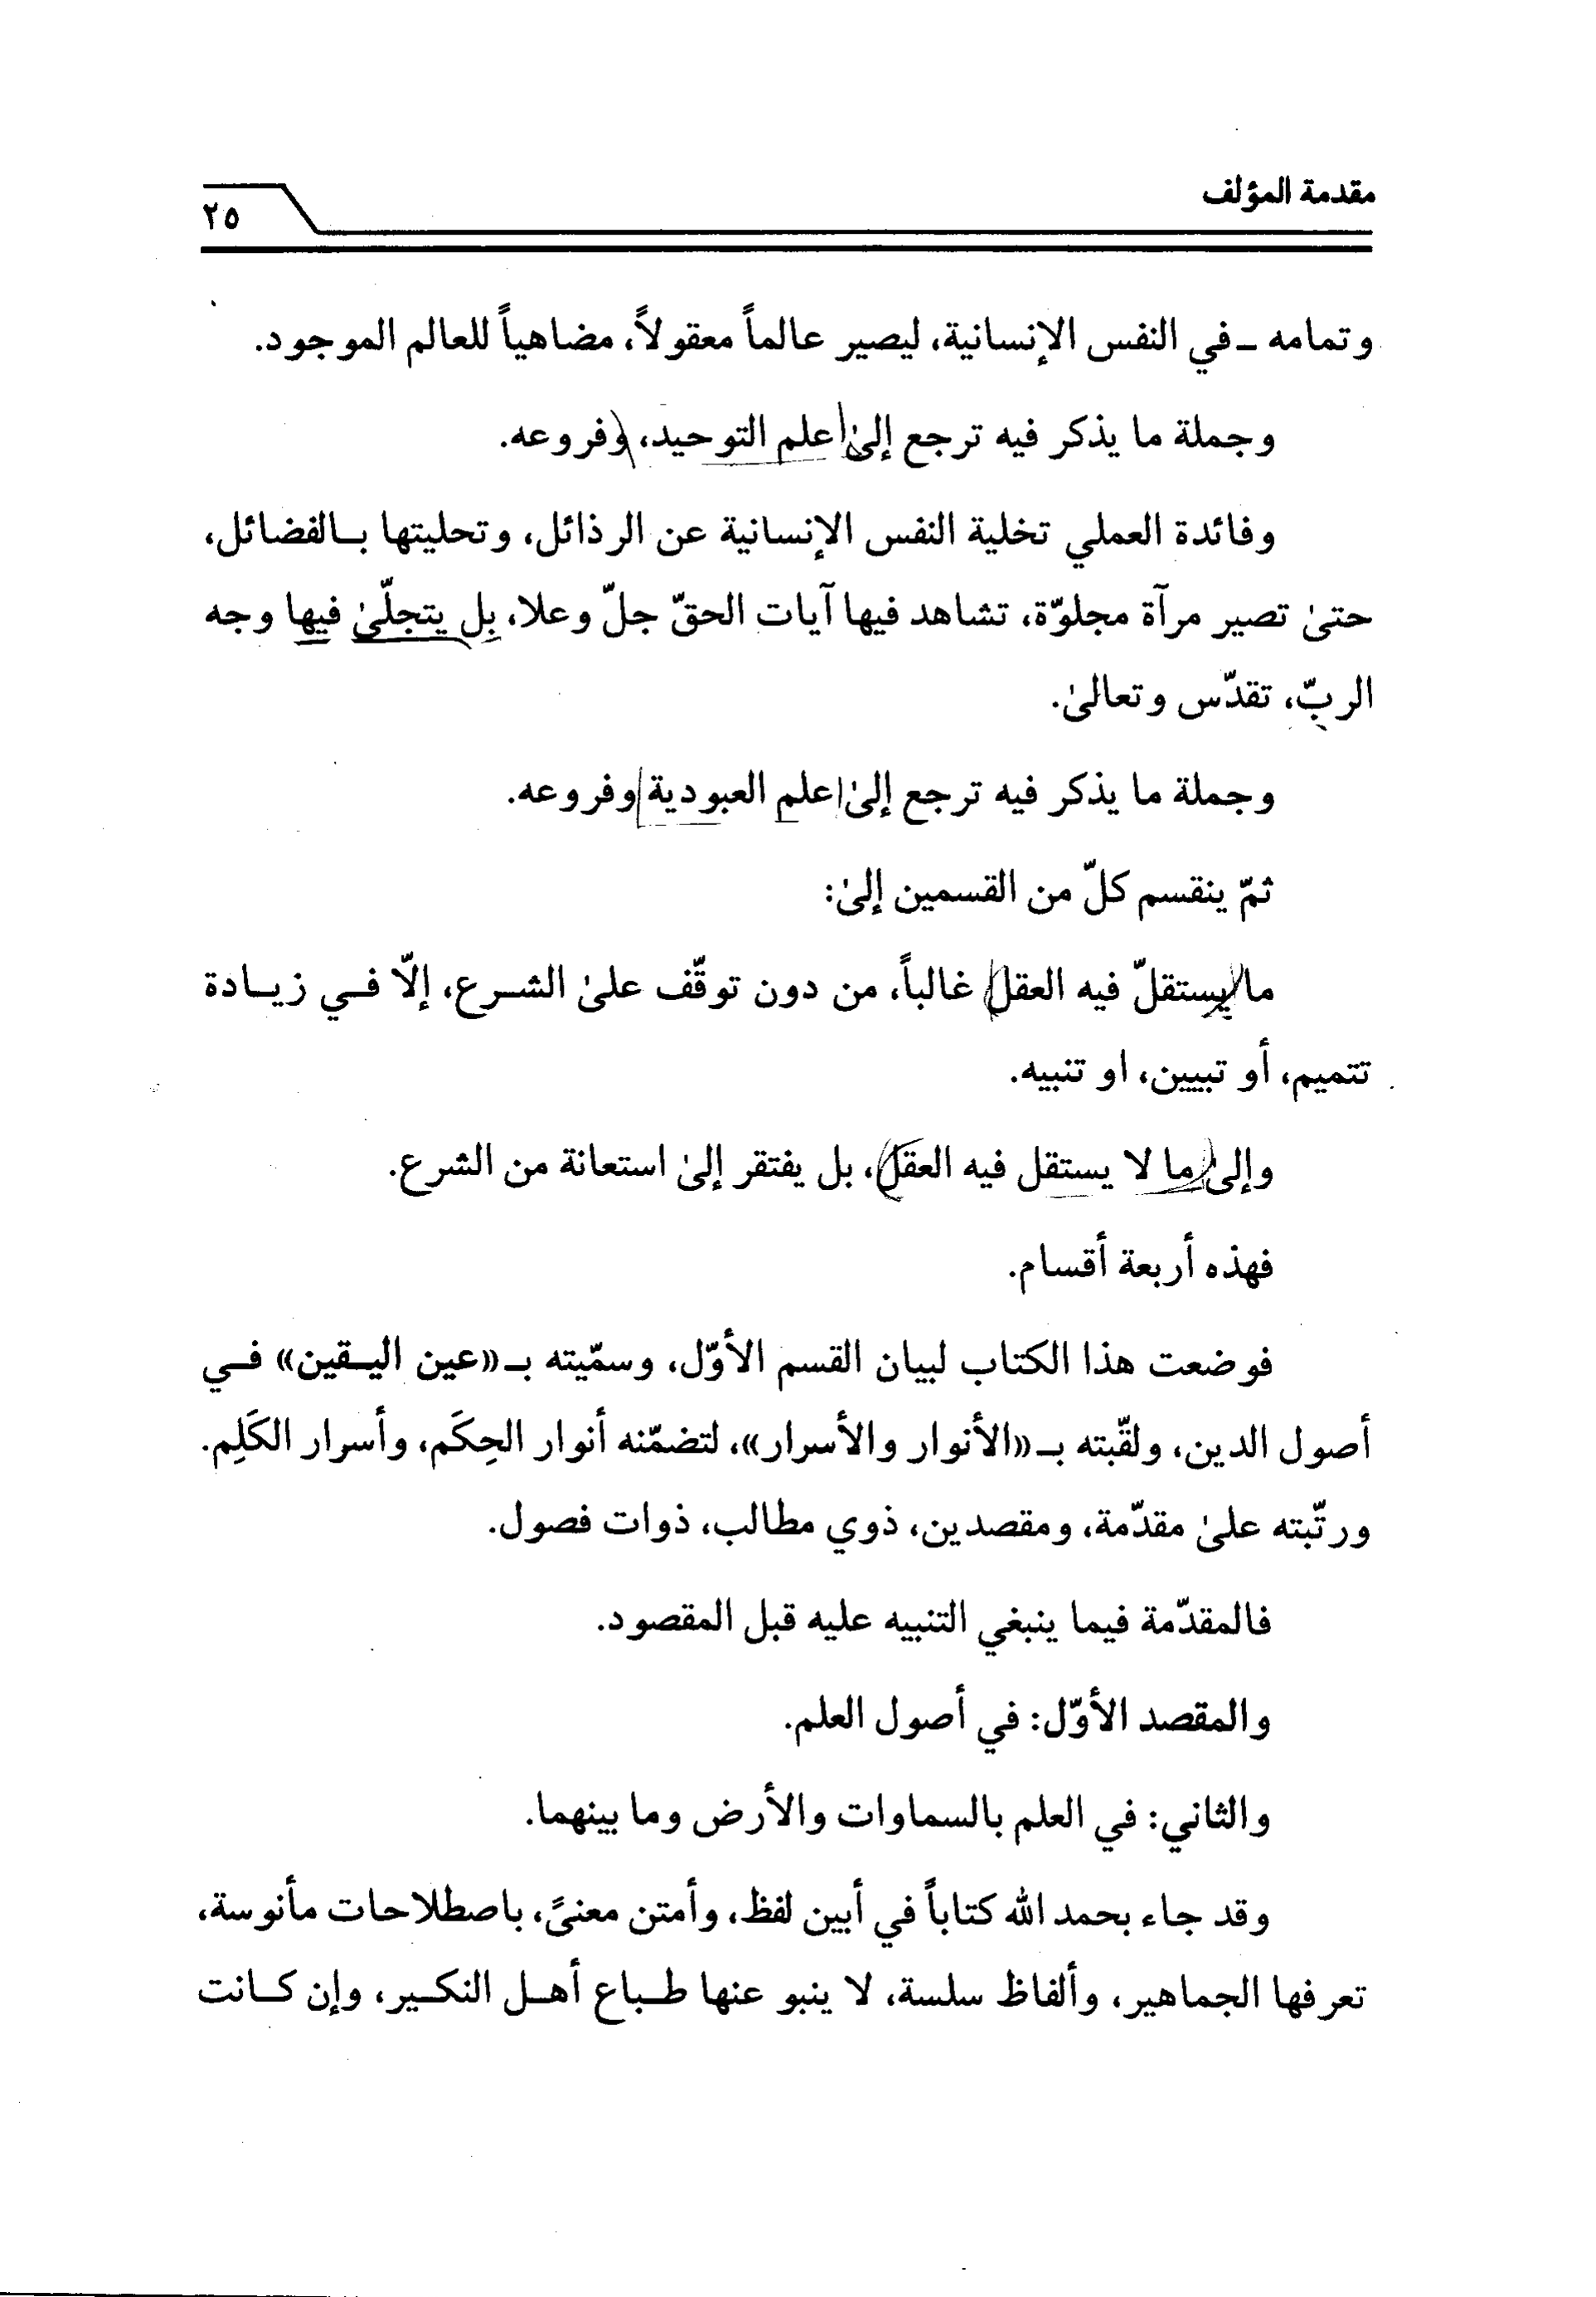 مقدمة المؤلف
٢٥
وتمامه ـ في النفس الإنسانية، ليصير عالماً معقولاً، مضاهياً للعالم الموجود.
وجملة ما يذكر فيه ترجع إلىٰ علم التوحيد، وفروعه.
وفائدة العملي تخلية النفس الإنسانية عن الرذائل، وتحليتها بـالفضائل،
حتىٰ تصير مرآة مجلوّة، تشاهد فيها آيات الحقّ جلّ وعلا، بل يتجلّىٰ فيها وجه
الربّ، تقدّس وتعالىٰ.
وجملة ما يذكر فيه ترجع إلىٰ علم العبودية وفروعه.
ثمّ ينقسم كلّ من القسمين إلىٰ:
ما يستقلّ فيه العقل غالباً، من دون توقّف علىٰ الشـرع، إلّا فـي زيـادة
تتميم، أو تبيين، او تنبيه.
وإلىٰ ما لا يستقل فيه العقل، بل يفتقر إلىٰ استعانة من الشرع.
فهذه أربعة أقسام.
فوضعت هذا الكتاب لبيان القسم الأوّل، وسمّيته بـ«عين اليـقين» فـي
أصول الدين، ولقّبته بـ«الأنوار والأسرار»، لتضمّنه أنوار الحِكَم، وأسرار الكَلِم.
ورتّبته علىٰ مقدّمة، ومقصدين، ذوي مطالب، ذوات فصول.
فالمقدّمة فيما ينبغي التنبيه عليه قبل المقصود.
والمقصد الأوّل: في أصول العلم.
والثاني: في العلم بالسماوات والأرض وما بينهما.
وقد جاء بحمد الله كتاباً في أبين لفظ، وأمتن معنىً، باصطلاحات مأنوسة،
تعرفها الجماهير، وألفاظ سلسة، لا ينبو عنها طـباع أهـل النكـير، وإن كـانت